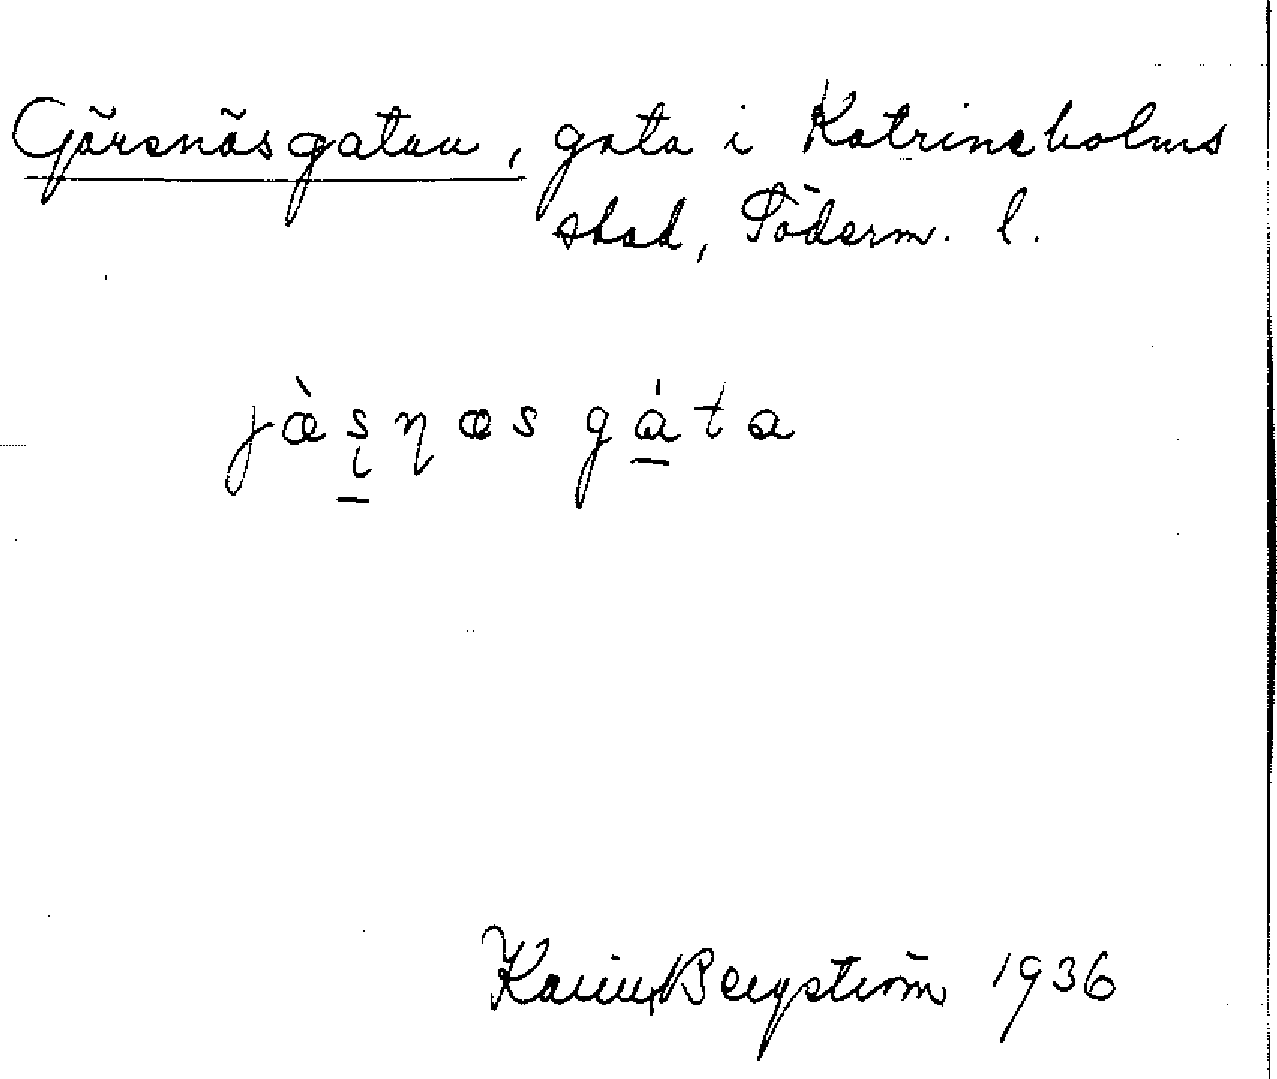 Gärsnäsgatan, gata i Katrineholms
stad, Söderm. l.
jæ̀ʂɳæs gáta
Karin Bergström 1936